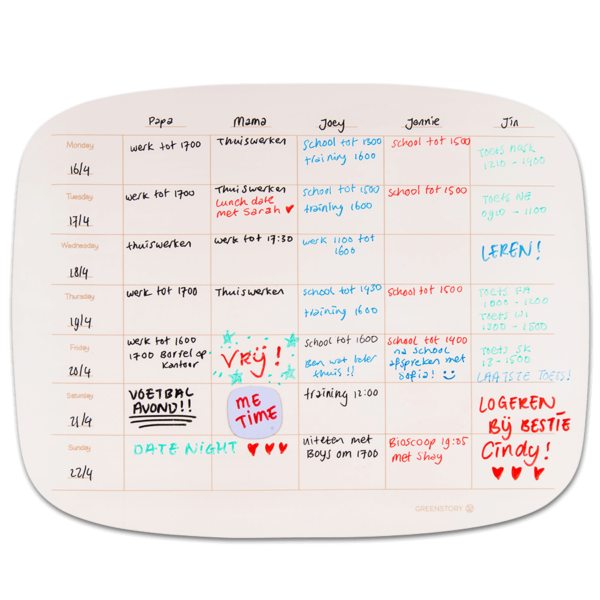 Papa Mama Joey Jonnie Jin
Monday
16/4
werk tot 1700
Thuiswerken
school tot 1300
training 1600
school tot 1500
TOETS NASK
1210 - 1400
Tuesday
17/4
werk tot 1700
Thuiswerken
Lunch date
met Sarah ♥
school tot 1500
training 1600
school tot 1500
TOETS NE
0910 - 1100
Wednesday
18/4
thuiswerken
werk tot 17:30
werk 1100 tot
1600
LEREN!
Thursday
19/4
werk tot 1700
Thuiswerken
school tot 1430
training 1600
school tot 1500
TOETS FA
1000 - 1200
TOETS WI
1300 - 1500
Friday
20/4
werk tot 1600
1700 Borrel op
kantoor
VRIJ!
school tot 1600
Ben wat later
thuis!!
school tot 1400
na school
afspreken met
Sofia!
TOETS SK
13 - 1500
LAATSTE TOETS!
Saturday
21/4
VOETBAL
AVOND!!
ME
TIME
training 12:00
LOGEREN
BIJ BESTIE
Cindy!
♥ ♥ ♥
Sunday
22/4
DATE NIGHT ♥ ♥ ♥
uiteten met
Boys om 1700
Bioscoop 19:05
met Shay
GREENSTORY